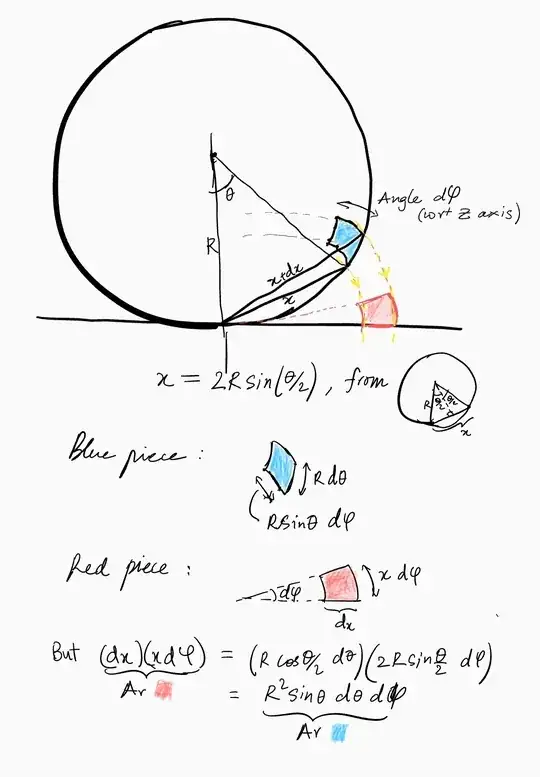 θ
R
Angle dφ
(wrt Z axis)
x+dx
x
x = 2R sin(θ/2), from
R
θ/2
θ/2
x
Blue piece :
R dθ
R sinθ dφ
Red piece :
dφ
x dφ
dx
But (dx)(x dφ) = (R cos θ/2 dθ)(2R sin θ/2 dφ)
Ar
= R² sinθ dθ dφ
Ar